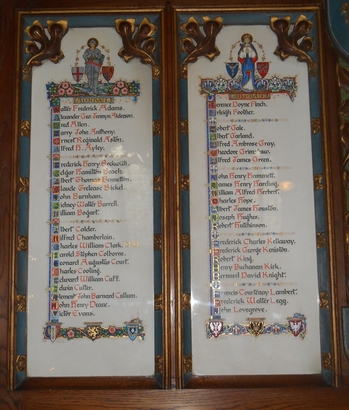 Walter Frederick Adams.
Alexander Geo. Jermyn Alderson.
Fred Allen.
Harry John Anthony.
Ernest Reginald Aplin.
Alfred H. Apley.
Frederick Henry
Edgar Hamilton Beach.
Albert Thomas
Claude Bickel.
John Burnham.
Sidney Walter Burrell.
William Bogart.
Albert Calder.
Wilfred Chamberlain.
Charles William Clark.
Harold Stephen Colborne.
Leonard Augustus Court.
Charles Cooling.
Edward William Cuff.
Edwin Cutler.
Clement John Barnard Cullum.
John Henry Deane.
Victor Evans.
Terence Doyne Finch.
Foother.
Robert Gale.
Albert Garland.
Alfred Ambrose Gray.
Theodore
Alfred James Green.
John Henry Hammett.
James Henry Harding.
William Alfred Herbert.
Charles Hope.
Albert James Houston.
Joseph Hughes.
Robert Hutchinson.
Frederick Charles Kellaway.
Frederick George Keniston.
Robert King.
Henry Buchanan Kirk.
Samuel David Knight.
Francis Courtenay Lambert.
Frederick Walter Legg.
John Lovegrove.